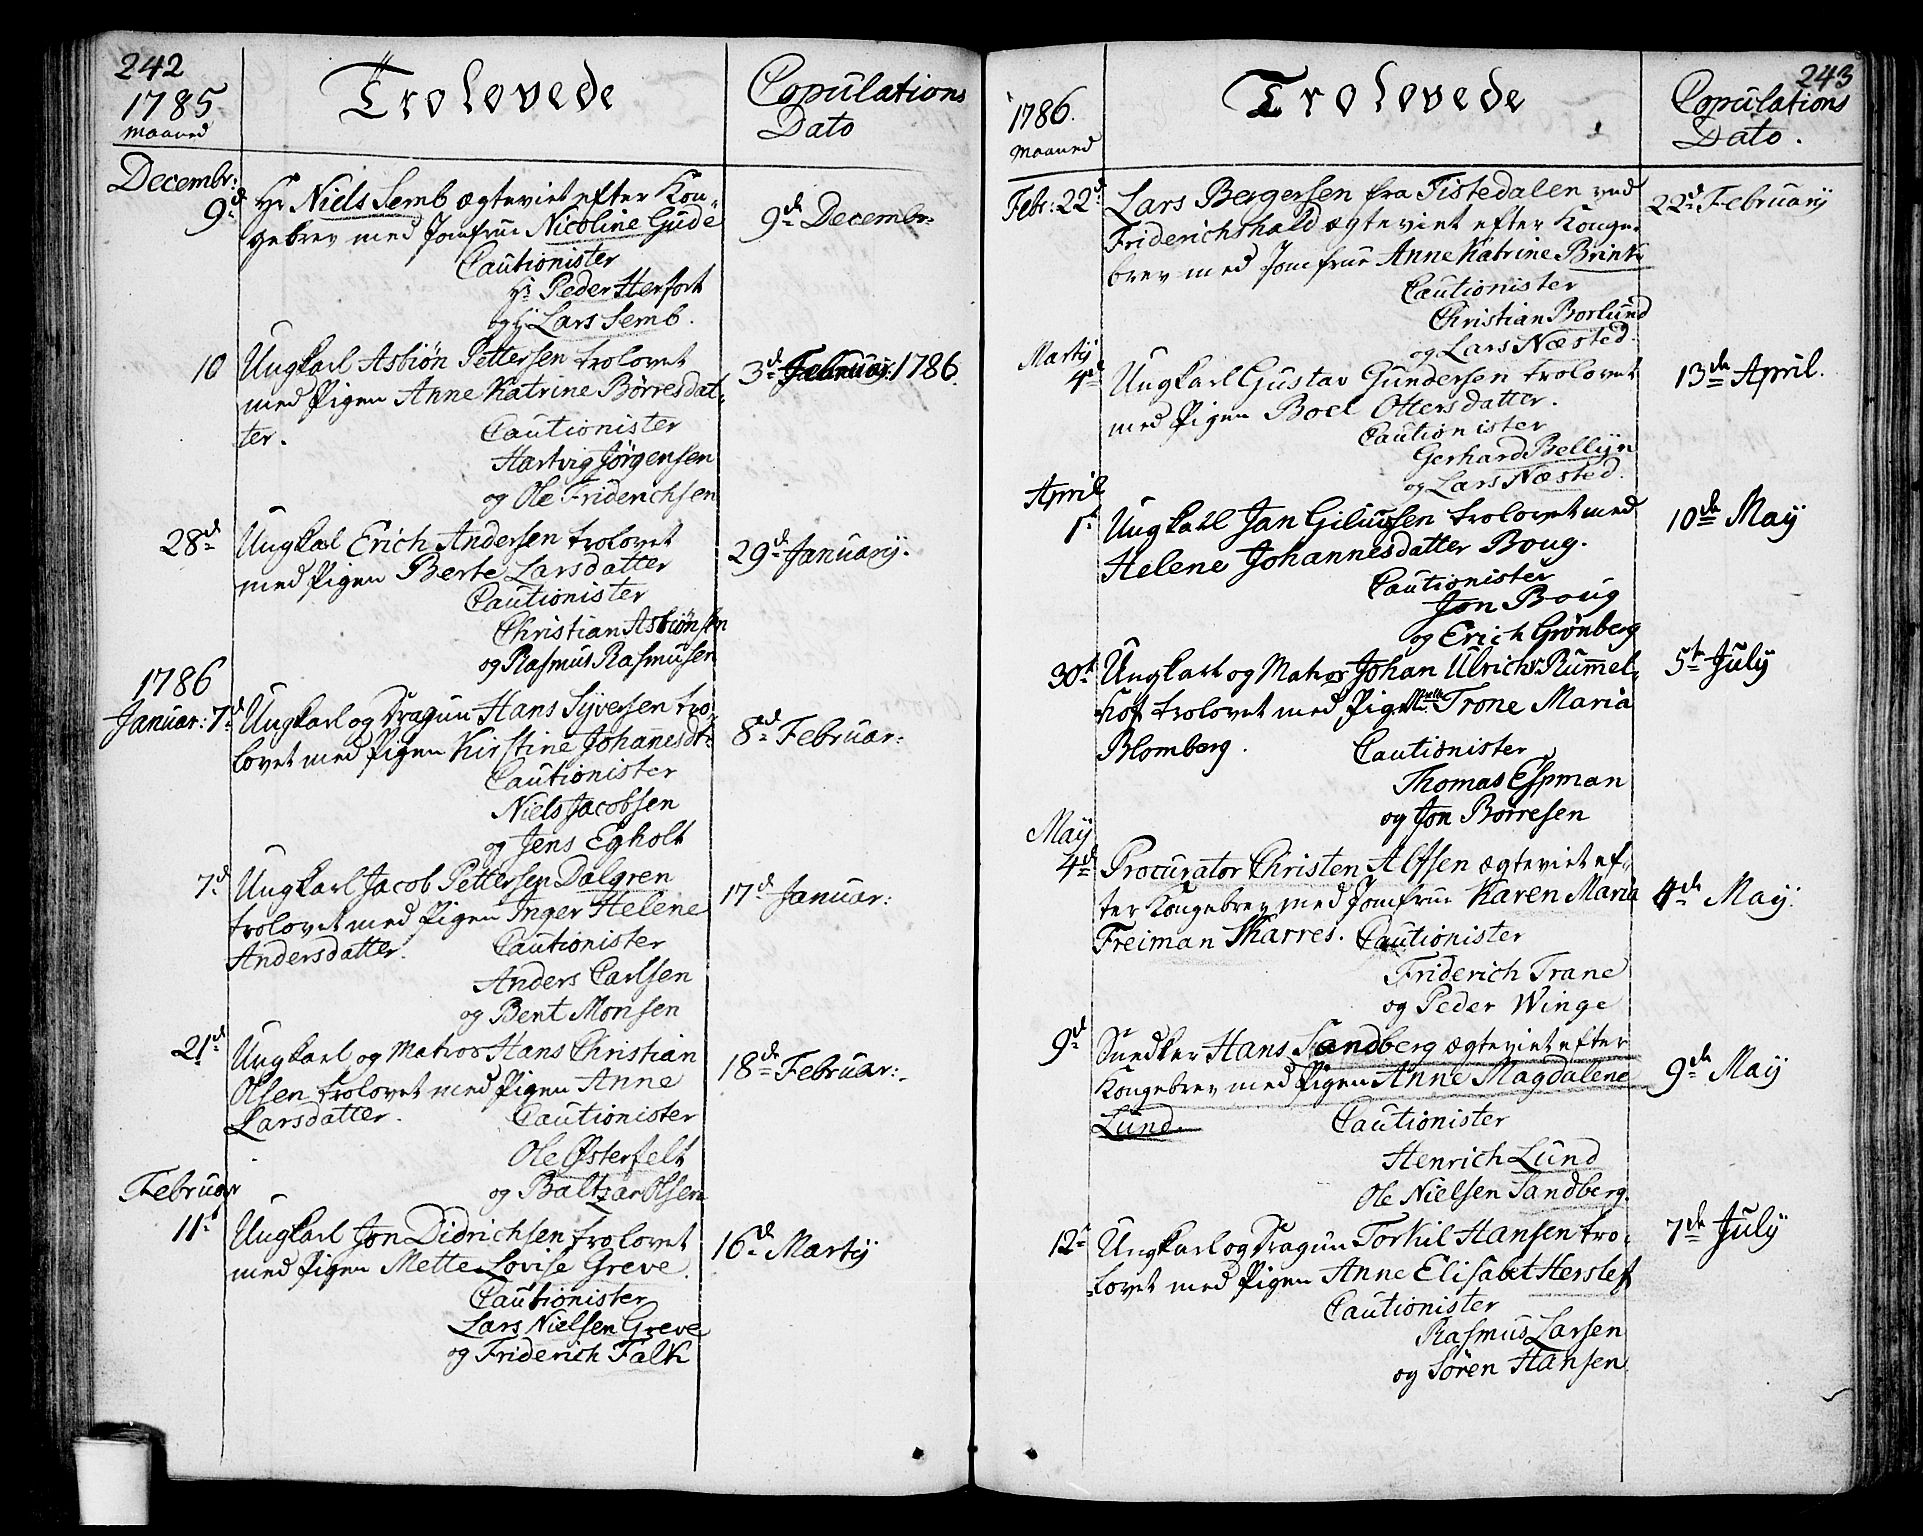 242
1785
Maaned
Trolovede
Copulations
Dato
Decembr:
9d Hr Niels Semb ægteviet efter Kon-
gebrev med Jomfrue Nicoline Gude
9de Decembr:
Cautionister
Hr Peder Herfort
og Hr Lars Semb.
10 Ungkarl Asbiøn Pettersen trolovet
med Pigen Anne Katrine Børresdat-
ter.
3de Februar: 1786.
Cautionister
Hartvig Jørgensen
og Ole Friderichsen
28de Ungkarl Erich Andersen trolovet
med Pigen Berte Larsdatter
29de Januarij.
Cautionister
Christian Asbiønsen
og Rasmus Rasmusen
1786
Januar: 7d Ungkarl og Dragun Hans Syversen tro-
lovet med Pigen Kirstine Johannesdt:
8de Februar:
Cautionister
Niels Jacobsen
og Jens Egholt
7d Ungkarl Jacob Pettersen Dalgren
trolovet med Pigen Inger Helene
Andersdatter.
17d Januar:
Cautionister
Anders Carlsen
og Bent Monsen
21d Ungkarl og Matros Hans Christian
Olsen trolovet med Pigen Anne
Larsdatter.
18de Februar:
Cautionister
Ole Østerfelt
og Baltzar Olsen
Februar
11t Ungkarl Jon Didrichsen trolovet
med Pigen Mette Lovise Greve.
16d Martij
Cautionister
Lars Nielsen Greve
og Friderich Falk
243
1786.
Maaned
Trolovede
Copulations
Dato.
Febr: 22d Lars Bergersen fra Tistedalen ved
Friderichshald ægteviet efter Konge-
brev med Jomfrue Anne Katrine Brink
22d Februarij
Cautionister
Christian Borlund
og Lars Næsted.
Martij
4de Ungkarl Gustav Gundersen trolovet
med Pigen Boel Ottersdatter.
13de April.
Cautionister
Gerhard Bellijn
og Lars Næsted.
April
1t Ungkarl Jan Giluusen trolovet med
Helene Johannesdatter Boug.
10de May
Cautionister
Jon Boug
og Erich Grønberg
30t Ungkarl og Matros Johan Ulrichs Rummel-
hof trolovet med Pigen Trone Maria
Blomberg.
5te July
Cautionister
Thomas Espman
og Jon Børresen
May
4de Procurator Christen Alfsen ægteviet ef-
ter Kongebrev med Jomfrue Karen Maria
Freiman Skarres.
4de May.
Cautionister
Friderich Trane
og Peder Winge
9d Snedker Hans Sandberg ægteviet efter
Kongebrev med Pigen Anne Magdalene
Lund.
9de May
Cautionister
Henrich Lund
Ole Nielsen Sandberg.
12te Ungkarl og Dragun Torkil Hansen tro-
lovet med Pigen Anne Elisabet Herslef
7de July
Cautionister
Rasmus Larsen
og Søren Hansen